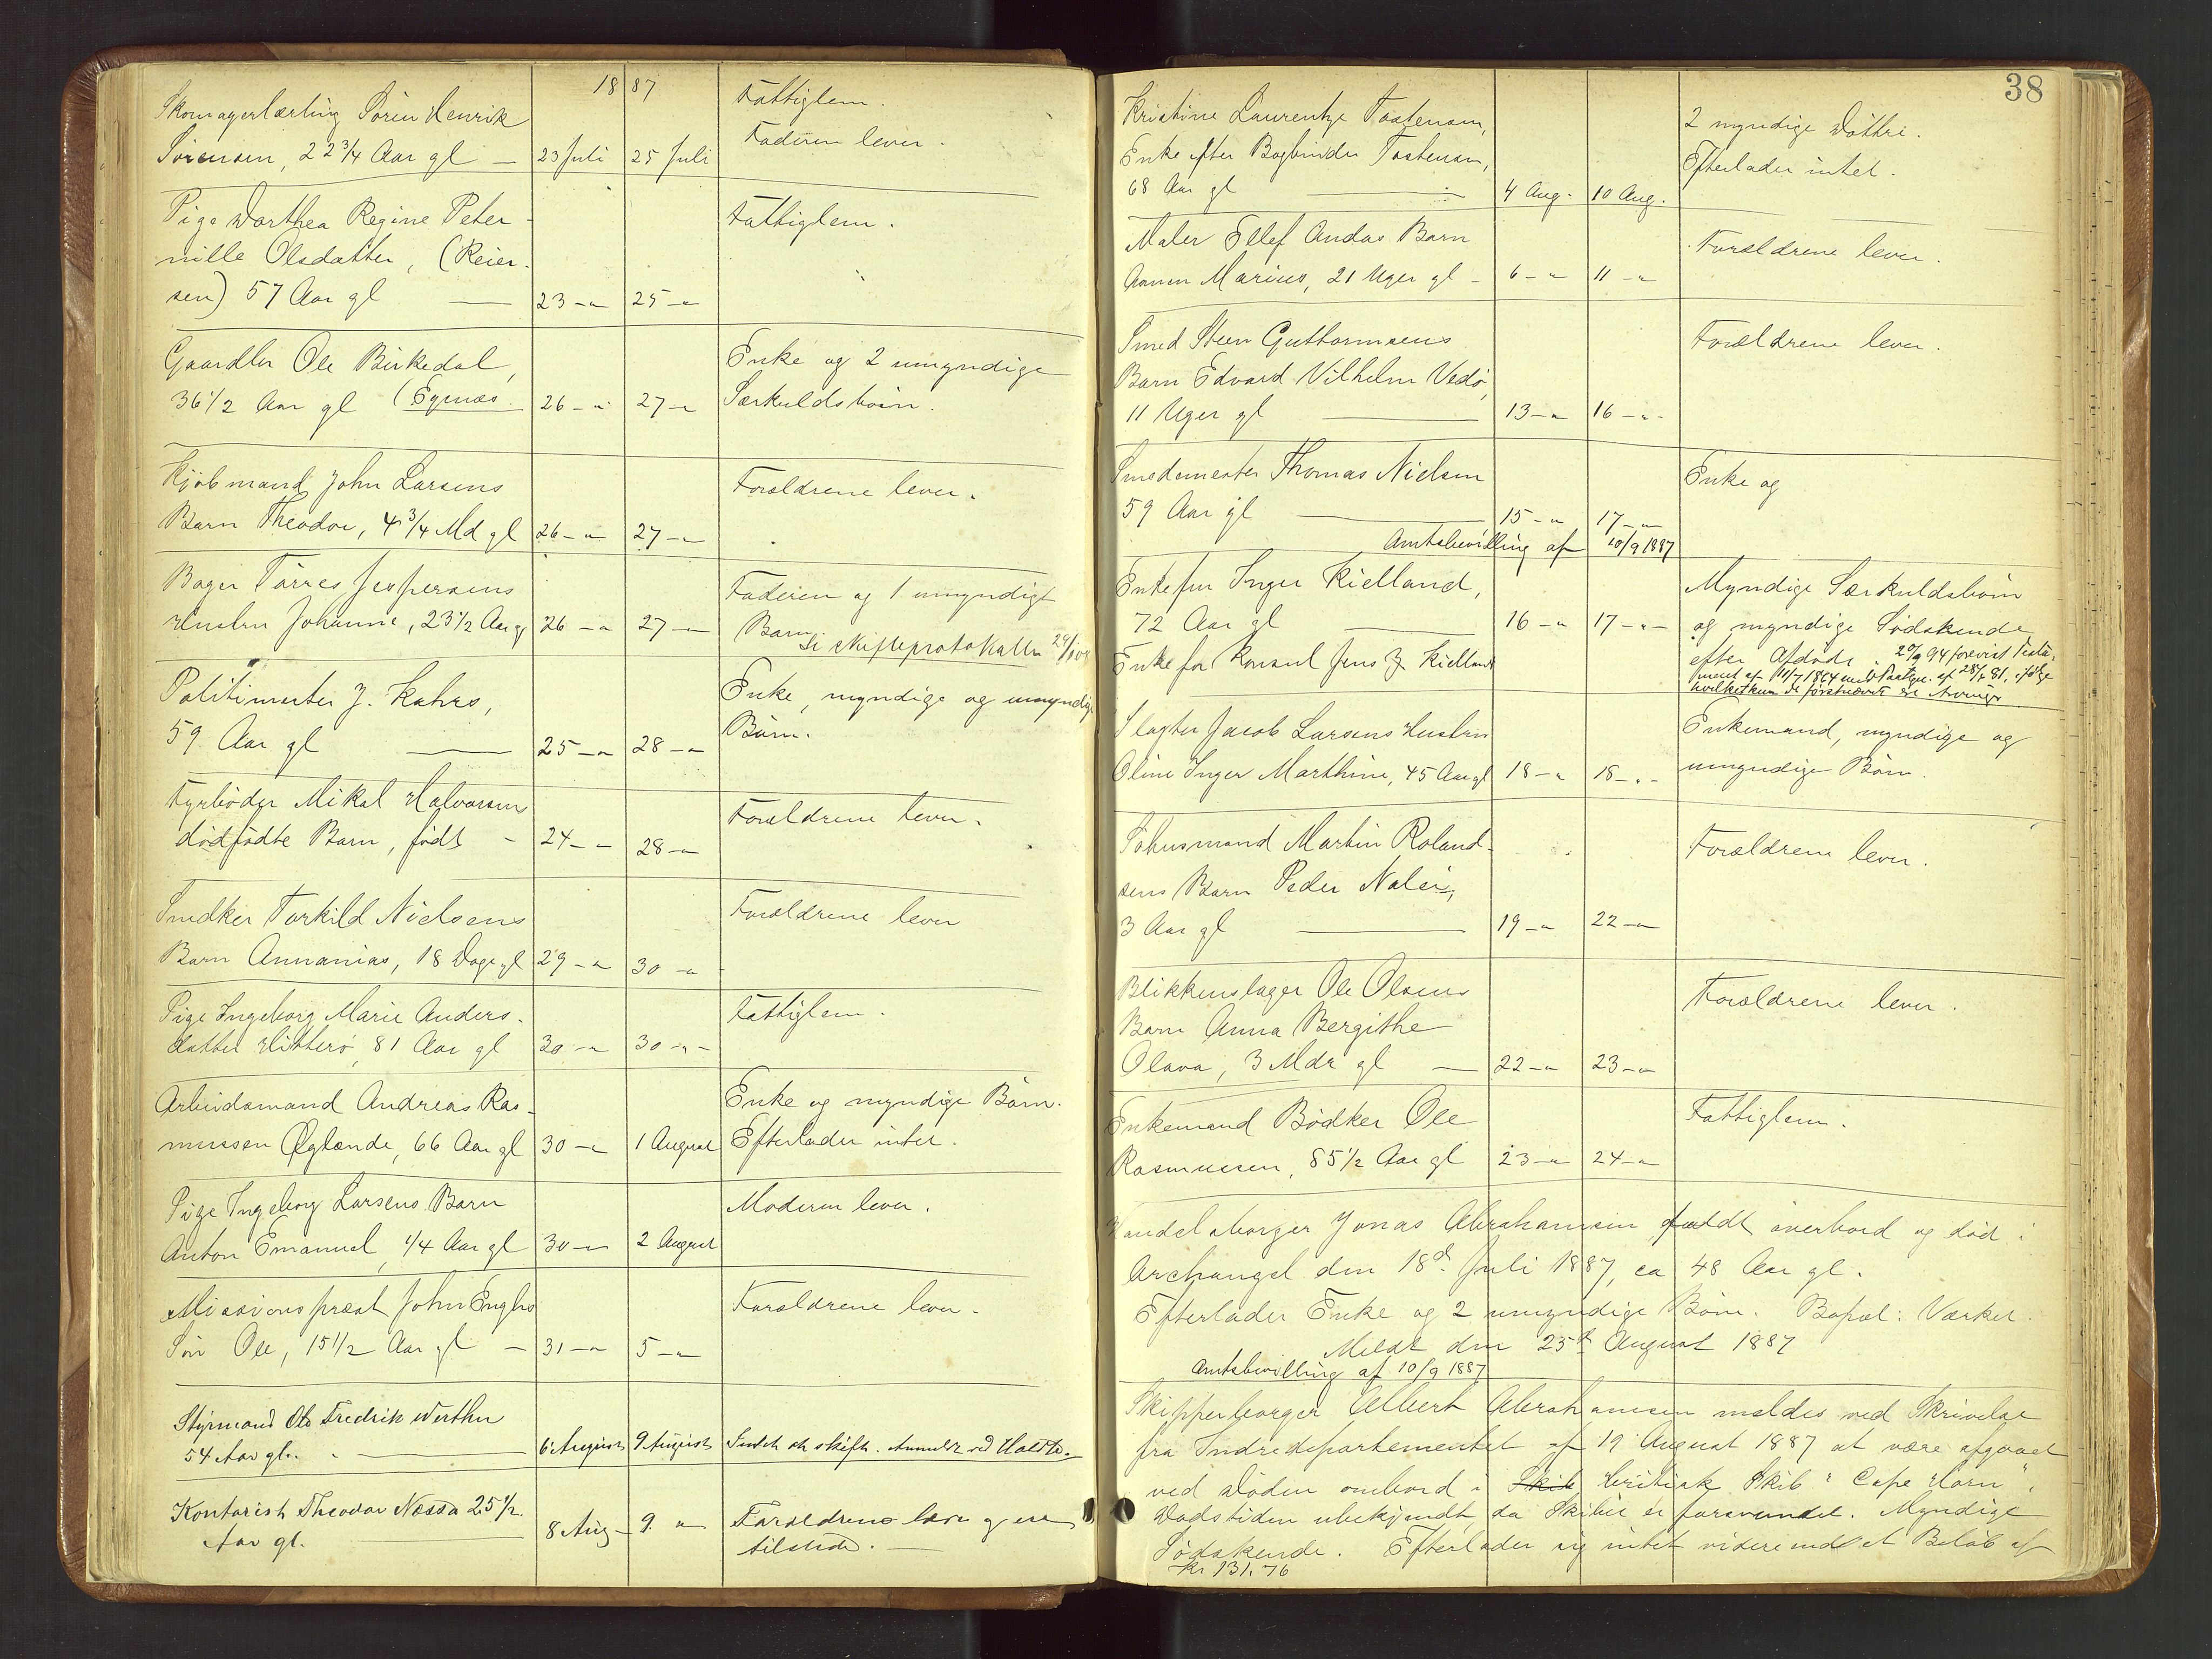 1887
Skomagerlærling Sören Henrik
Sörensen, 22 3/4 Aar gl — 23 Juli 25 Juli
Fattiglem.
Faderen lever.
Pige Dorthea Regine Peter-
nille Olsdatter, (Reier-
sen) 57 Aar gl — 23 –"– 25 –"–
Fattiglem.
Gaardbr Ole Birkedal,
36 1/2 Aar gl (Egenæs. 26 –"– 27 –"–
Enke og 2 umyndige
Særkuldsbörn.
Kjöbmand John Larsens
Barn Theodor, 4 3/4 Md gl 26 –"– 27 –"–
Forældrene lever.
Bager Törres Jespersens
Hustru Johanne, 23 1/2 Aar g 26 –"– 27 –"–
Faderen og 1 umyndigt
Barn
Se skifteprotokollen
Politimester J. Kahrs,
59 Aar gl — 25 –"– 28 –"–
Enke, myndige og umyndige
Börn.
Fyrböder Mikal Halvorsens
dödfödte Barn, födt – 24 –"– 28 –"–
Forældrene lever.
Snedker Torkild Nielsens
Barn Annanias, 18 Dage gl 29 –"– 30 –"–
Forældrene lever
Pige Ingeborg Marie Anders-
datter Hitterö, 81 Aar gl 30 –"– 30 –"–
Fattiglem.
Arbeidsmand Andreas Ras-
mussen Öglænde, 66 Aar gl 30 –"– 1 August
Enke og myndige Börn.
Efterlader intet.
Pige Ingeborg Larsens Barn
Anton Emanuel, 1/4 Aar gl 30 –"– 2 August
Moderen lever.
Missionspræst John Enghs
Sön Ole, 15 1/2 Aar gl – 31 –"– 5 –"–
Forældrene lever.
Styrmand Ole Fredrik
54 Aar gl. — 6 August 9 August
Kontorist Theodor Næssø 25 1/2
Aar gl. — 8 Aug – 9 "
Forældrene lever og ere
tilstede. —
38
Kristine Laurentze Tostensen,
Enke efter Bogbinder Tostensen,
68 Aar gl — 4 Aug. 10 Aug.
2 myndige Döttre.
Efterlader intet.
Maler Ellef Andas Barn
Marius, 21 Uger gl – 6 –"– 11 –"–
Forældrene lever.
Smed Steen Guttormsens
Barn Edvard Vilhelm Vedö,
11 Uger gl — 13 –"– 16 –"–
Forældrene lever.
Smedemester Thomas Nielsen
59 Aar gl — 15 –"– 17 –"–
Enke og
Amtsbevilling af 10/9 1887
Enkefru Inger Kielland,
72 Aar gl — 16 –"– 17 –"–
Enke for Konsul Jens Z Kielland
Myndige Særkuldsbörn
og myndige Södskende
efter Afdöde. 20/9 94 forevist Testa-
ment af 11/7 1864 med af 28/ 81, ifölge
hvilket kun de förstnævnte er Arvinger
Slagter Jacob Larsens Hustru
Oline Inger Marthine, 45 Aar gl 18 –"– 18 –"–
Enkemand, myndige og
umyndige Börn.
Söhusmand Martin Roland-
sens Barn Peder Nalei,
3 Aar gl — 19 –"– 22 –"–
Forældrene lever.
Blikkenslager Ole Olsens
Barn Anna Bergithe
Olava, 3 Mdr gl — 22 –"– 23 –"–
Forældrene lever.
Enkemand Bödker Ole
Rasmussen, 85 1/2 Aar gl 23 –"– 24 –"–
Fattiglem.
Handelsborger Jonas Abrahamsen faldt overbord og död i
Archangel den 18de Juli 1887, ca 48 Aar gl.
Efterlader Enke og 2 umyndige Börn. Bopæl: Værket.
Meldt den 25de August 1887
Amtsbevilling af 10/9 1887
Skipperborger Albert Abrahamsen meldes ved Skrivelse
fra Indredepartementet af 19 August 1887 at være afgaaet
ved Döden ombord i Skib britisk Skib "Cape Horn",
Dödstiden ubekjendt, da Skibet er forsvundet. Myndige
Södskende. Efterlader sig intet videre end et Belöb af
Kr 131.76